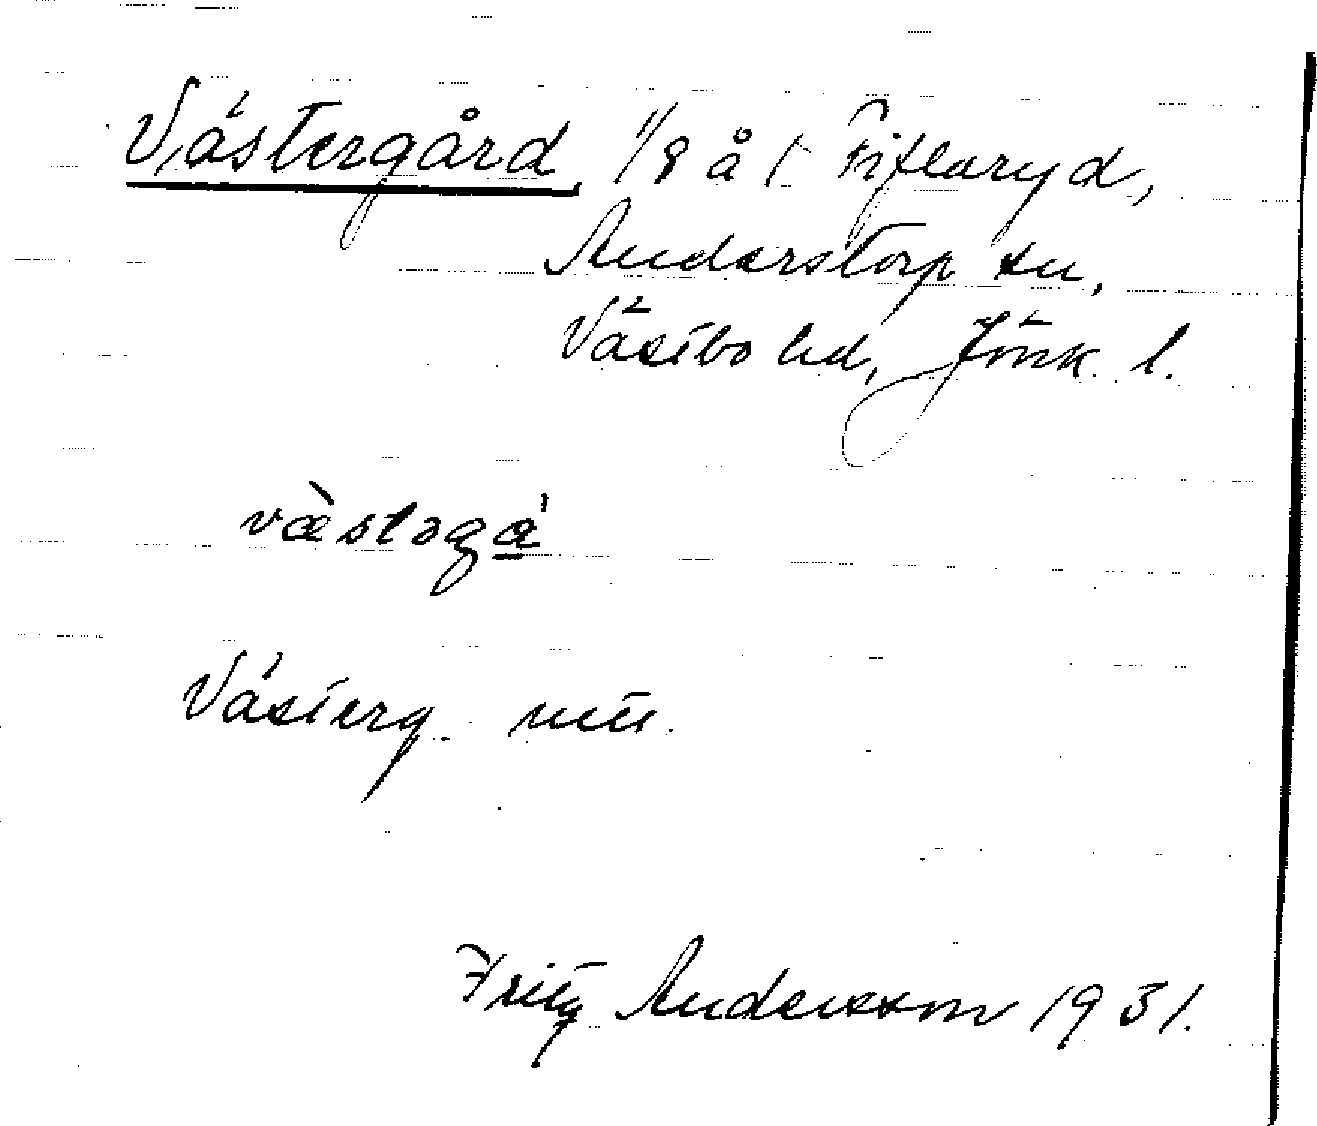 Västergård, 1/8 å 1 Fiflaryd,
Anderstorp sn,
Västbo hd, Jönk. l.
væ̀stəga̱'
Västerg. utt.
Fritz Andersson 1931.